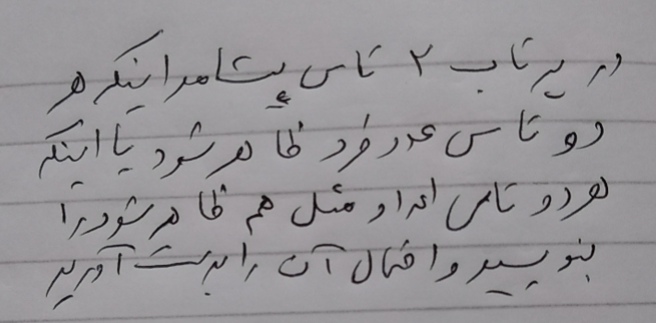 در پرتاب ۲ تاس پیشامد اینکه هر
دو تاس عدد فرد ظاهر شود یا اینکه
هر دو تاس اعداد مثل هم ظاهر شود را
بنویسید و احتمال آن را بدست آورید